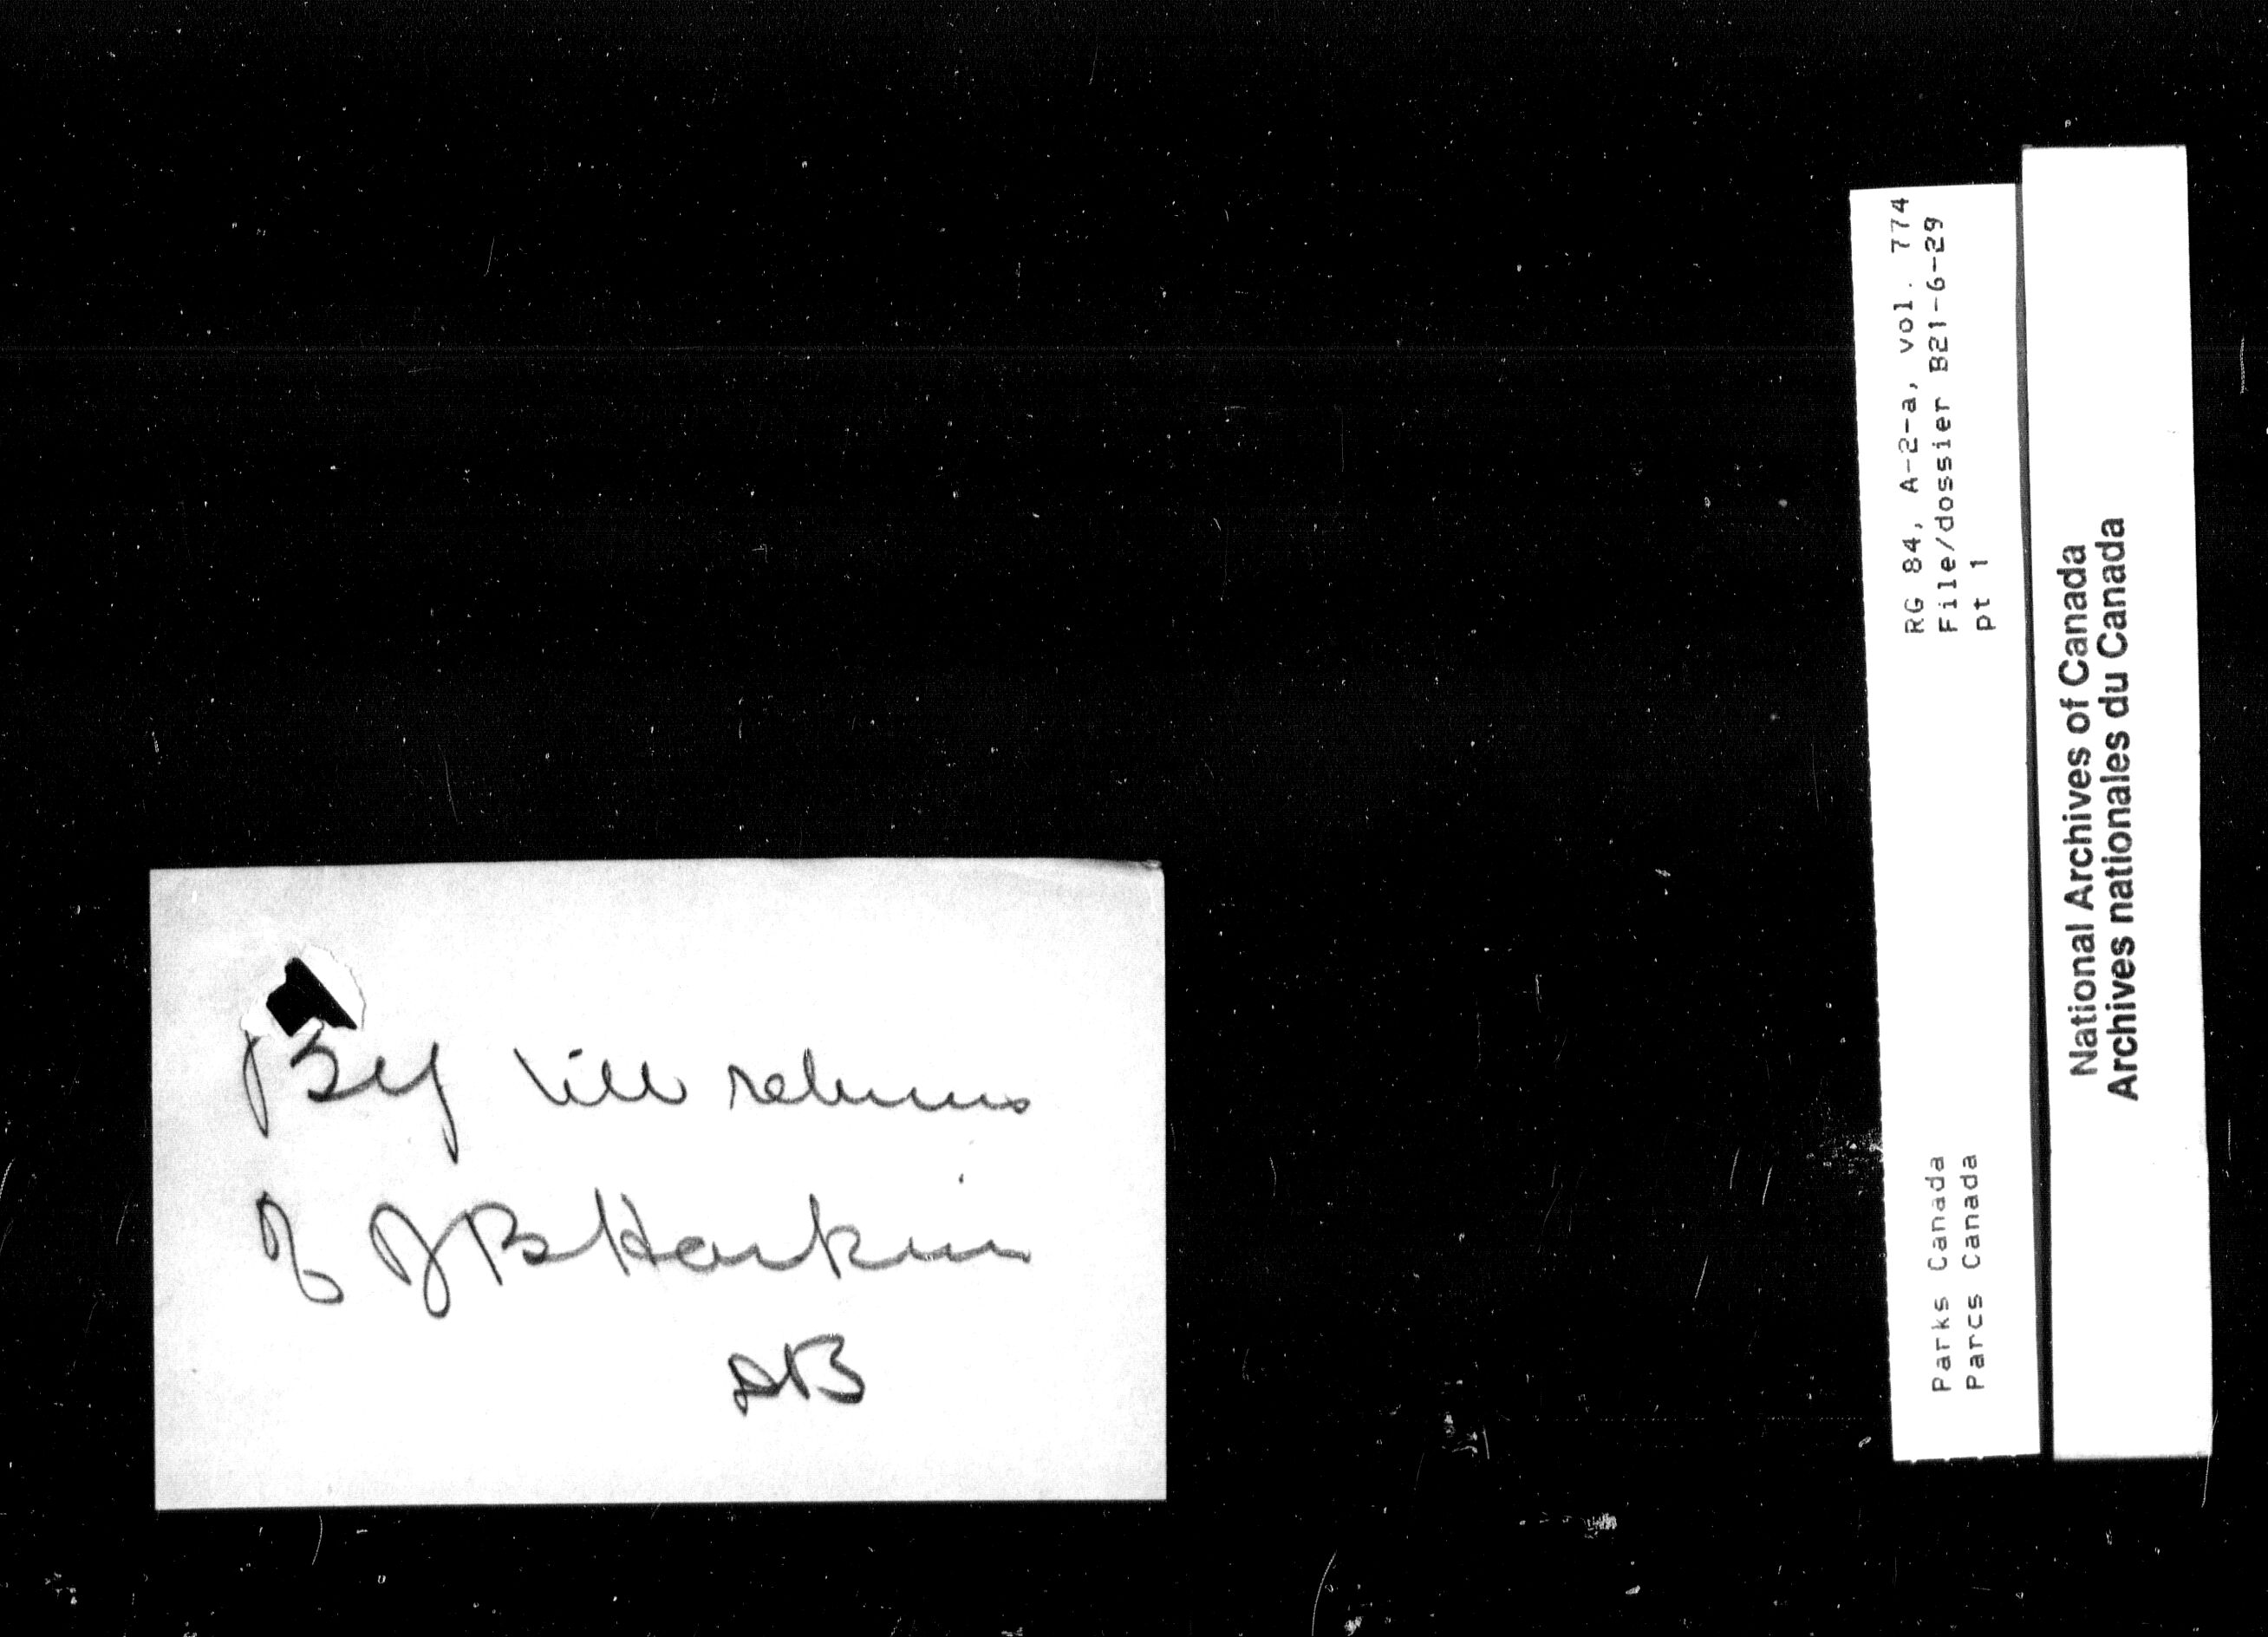 BF till returns
of JB Harkin
AB
RG 84, A-2-a, vol. 774
File/dossier B21-6-29
pt 1
Parks Canada
Parcs Canada
National Archives of Canada
Archives nationales du Canada